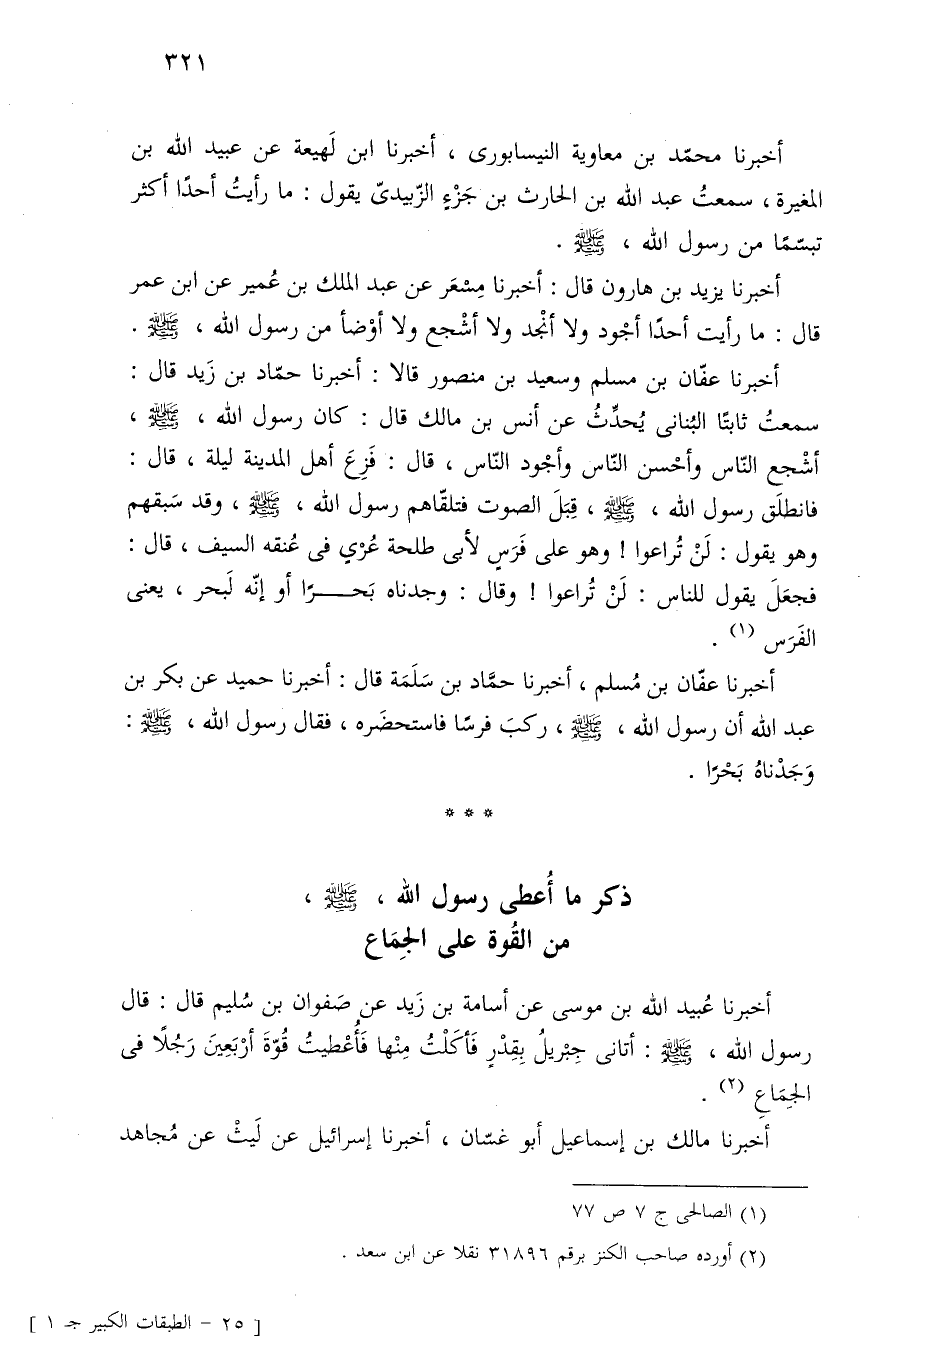 ٣٢١
أخبرنا محمّد بن معاوية النيسابورى ، أخبرنا ابن لَهيعة عن عبيد الله بن
المغيرة ، سمعتُ عبد الله بن الحارث بن جَزْءٍ الزّبيدىّ يقول : ما رأيتُ أحدًا أكثر
تبسّمًا من رسول الله ، ﷺ .
أخبرنا يزيد بن هارون قال : أخبرنا مِسْعَر عن عبد الملك بن عُمير عن ابن عمر
قال : ما رأيت أحدًا أجْود ولا أنْجد ولا أشْجع ولا أوْضأ من رسول الله ، ﷺ .
أخبرنا عفّان بن مسلم وسعيد بن منصور قالا : أخبرنا حمّاد بن زَيد قال :
سمعتُ ثابتًا البُنانى يُحدِّثُ عن أنس بن مالك قال : كان رسول الله ، ﷺ ،
أشْجع النّاس وأحْسن النّاس وأجْود النّاس ، قال : فَزِعَ أهل المدينة ليلة ، قال :
فانطلَق رسول الله ، ﷺ ، قِبَلَ الصوت فتلقّاهم رسول الله ، ﷺ ، وقد سَبقهم
وهو يقول : لَنْ تُراعوا ! وهو على فَرَسٍ لأبى طلحة عُرْي فى عُنقه السيف ، قال :
فجعَلَ يقول للناس : لَنْ تُراعوا ! وقال : وجدناه بَحـــــرًا أو إنّه لَبحر ، يعنى
الفَرَس (١) .
أخبرنا عفّان بن مُسلم ، أخبرنا حمَّاد بن سَلَمَة قال : أخبرنا حميد عن بكر بن
عبد الله أن رسول الله ، ﷺ ، ركبَ فرسًا فاستحضَره ، فقال رسول الله ، ﷺ :
وَجَدْناهُ بَحْرًا .
* * *
ذكر ما أُعطى رسول الله ، ﷺ ،
من القُوة على الجِمَاع
أخبرنا عُبيد الله بن موسى عن أسامة بن زَيد عن صَفوان بن سُليم قال : قال
رسول الله ، ﷺ : أتانى جِبْريلُ بِقِدْرٍ فَأكَلْتُ مِنْها فَأُعْطيتُ قُوّةَ أرْبَعينَ رَجُلًا فى
الجِمَاعِ (٢) .
أخبرنا مالك بن إسماعيل أبو غسّان ، أخبرنا إسرائيل عن لَيثْ عن مُجاهد
(١) الصالحى ج ٧ ص ٧٧
(٢) أورده صاحب الكنز برقم ٣١٨٩٦ نقلا عن ابن سعد .
[ ٢٥ – الطبقات الكبير جـ ١ ]